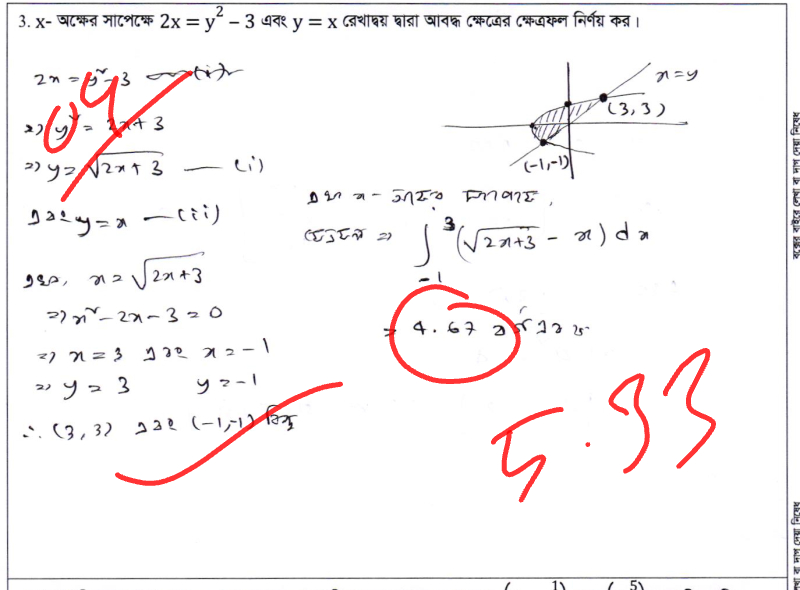 3. x- অক্ষের সাপেক্ষে 2x = y² − 3 এবং y = x রেখাদ্বয় দ্বারা আবদ্ধ ক্ষেত্রের ক্ষেত্রফল নির্ণয় কর।
2x = y² - 3 — (i)
04
⇒ y² = 2x + 3
⇒ y = √(2x + 3) — (i)
এবং y = x — (ii)
এখন, x = √(2x + 3)
⇒ x² - 2x - 3 = 0
⇒ x = 3 এবং x = -1
⇒ y = 3 y = -1
∴ (3, 3) এবং (-1, -1) বিন্দু
x = y
(3, 3)
(-1, -1)
এখন x - অক্ষের সাপেক্ষে,
ক্ষেত্রফল = ∫₋₁³ (√(2x+3) - x) dx
= 4.67 বর্গ একক
5.33
বক্সের বাইরে লেখা বা দাগ দেয়া নিষেধ
লেখা বা দাগ দেয়া নিষেধ